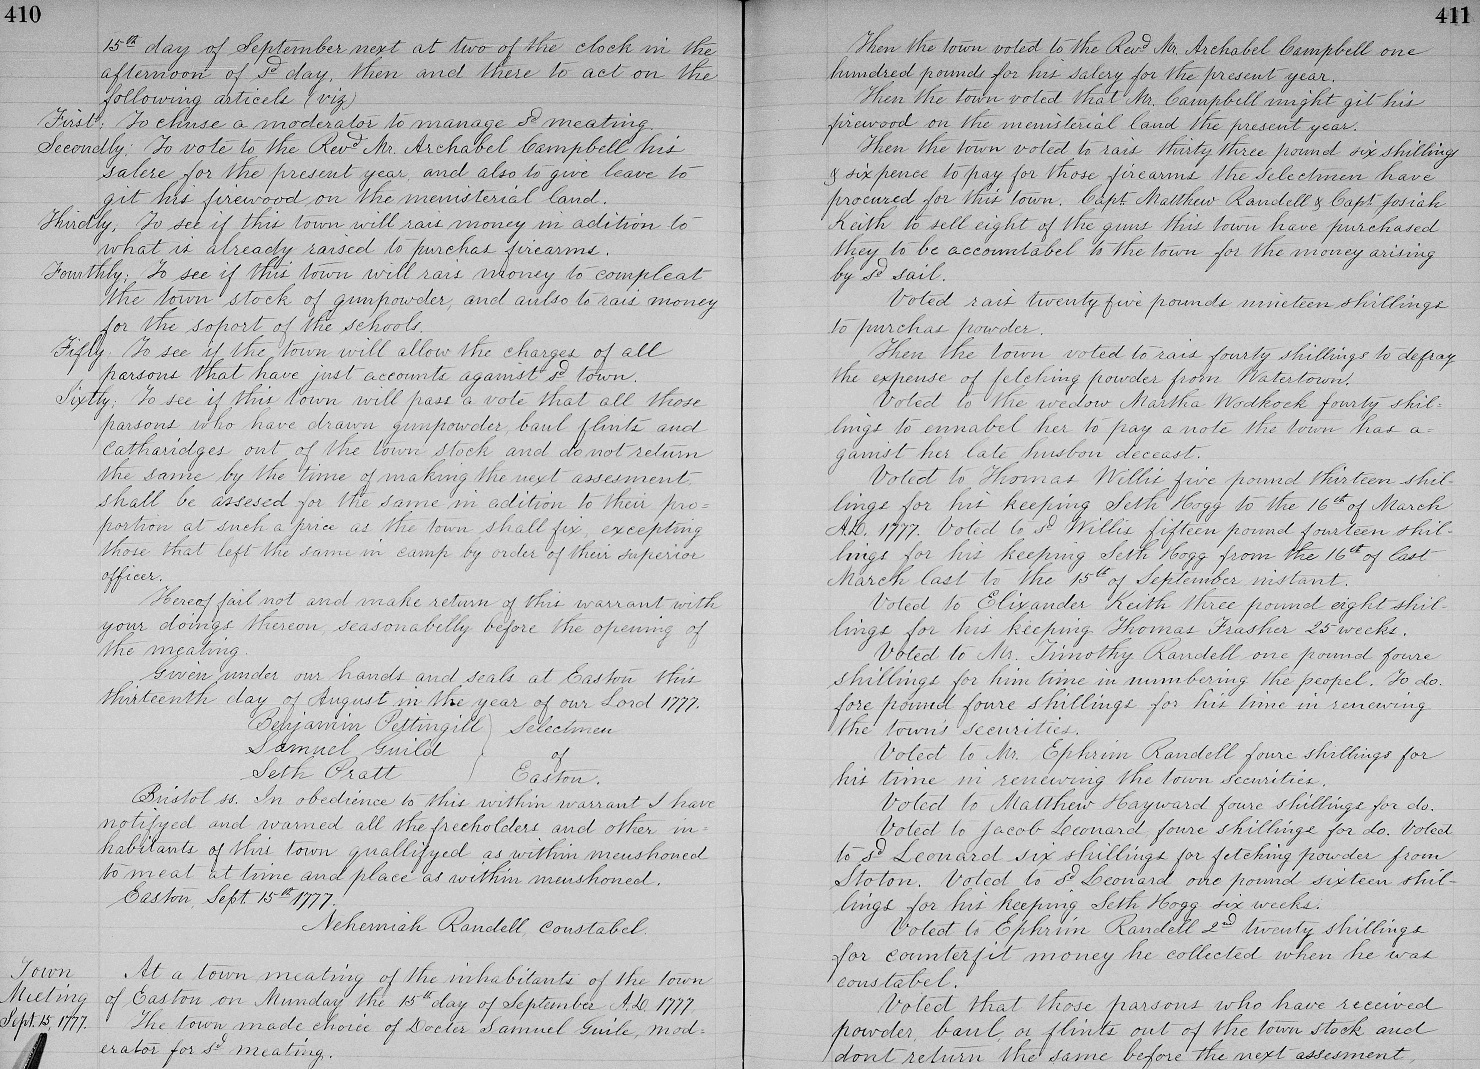 410
15th day of September next at two of the clock in the
afternoon of sd day, then and there to act on the
following articels (viz)
First; To chuse a moderator to manage sd meating.
Secondly; To vote to the Revd Mr. Archabel Campbell his
salere for the present year, and also to give leave to
git his firewood on the menisterial land.
Thirdly; To see if this town will rais money in adition to
what is already raised to purchas firearms.
Fourthly; To see if this town will rais money to compleat
the town stock of gunpowder, and aulso to rais money
for the soport of the schools.
Fifly; To see if the town will allow the charges of all
parsons that have just accounts against sd town.
Sixtly; To see if this town will pass a vote that all those
parsons who have drawn gunpowder, baul flints and
catharidges out of the town stock and do not return
the same by the time of making the next assesment
shall be assesed for the same in adition to their pro=
portion at such a price as the town shall fix, excepting
those that left the same in camp by order of their superior
officer.
Hereof fail not and make return of this warrant with
your doings thereon, seasonabelly before the opening of
the meating.
Given under our hands and seals at Easton this
thirteenth day of August in the year of our Lord 1777.
Benjamin Pettingill ) Selectmen
Samuel Guild of
Seth Pratt ) Easton.
Bristol ss. In obedience to this within warrant I have
notifyed and warned all the freeholders and other in=
habitants of this town quallifyed as within menshoned
to meat at time and place as within menshoned.
Easton, Sept. 15th 1777.
Nehemiah Randell, constabel.
Town
Meeting
Sept. 15, 1777.
At a town meating of the inhabitants of the town
of Easton on Munday the 15th day of September A.D. 1777
The town made choice of Docter Samuel Guile, mod=
erator for sd meating.
411
Then the town voted to the Revd Mr. Archabel Campbell one
hundred pounds for his salery for the present year.
Then the town voted that Mr. Campbell might git his
firewood on the menisterial land the present year.
Then the town voted to rais thirty three pound six shillings
& sixpence to pay for those firearms the selectmen have
procured for this town. Capt. Matthew Randell & Capt. Josiah
Keith to sell eight of the guns this town have purchased
they to be accountabel to the town for the money arising
by sd sail.
Voted rais twenty five pounds nineteen shillings
to purchas powder.
Then the town voted to rais fourty shillings to defray
the expense of fetching powder from Watertown.
Voted to the wedow Martha Wodkock fourty shil=
lings to ennabel her to pay a note the town has a=
gainst her late husbon deceast.
Voted to Thomas Willis five pound thirteen shil-
lings for his keeping Seth Hogg to the 16th of March
A.D. 1777. Voted to sd Willis fifteen pound fourteen shil-
lings for his keeping Seth Hogg from the 16th of last
March last to the 15th of September instant.
Voted to Elixander Keith three pound eight shil-
lings for his keeping Thomas Frasher 25 weeks.
Voted to Mr. Timothy Randell one pound foure
shillings for him time in numbering the peopel. To do.
fore pound foure shillings for his time in renewing
the town's securities.
Voted to Mr. Ephrim Randell foure shillings for
his time in renewing the town securities.
Voted to Matthew Hayward foure shillings for do.
Voted to Jacob Leonard foure shillings for do. Voted
to sd Leonard six shillings for fetching powder from
Stoton. Voted to sd Leonard one pound sixteen shil-
lings for his keeping Seth Hogg six weeks.
Voted to Ephrim Randell 2nd twenty shillings
for counterfit money he collected when he was
constabel.
Voted that those parsons who have received
powder, baul, or flints out of the town stock and
dont return the same before the next assesment,